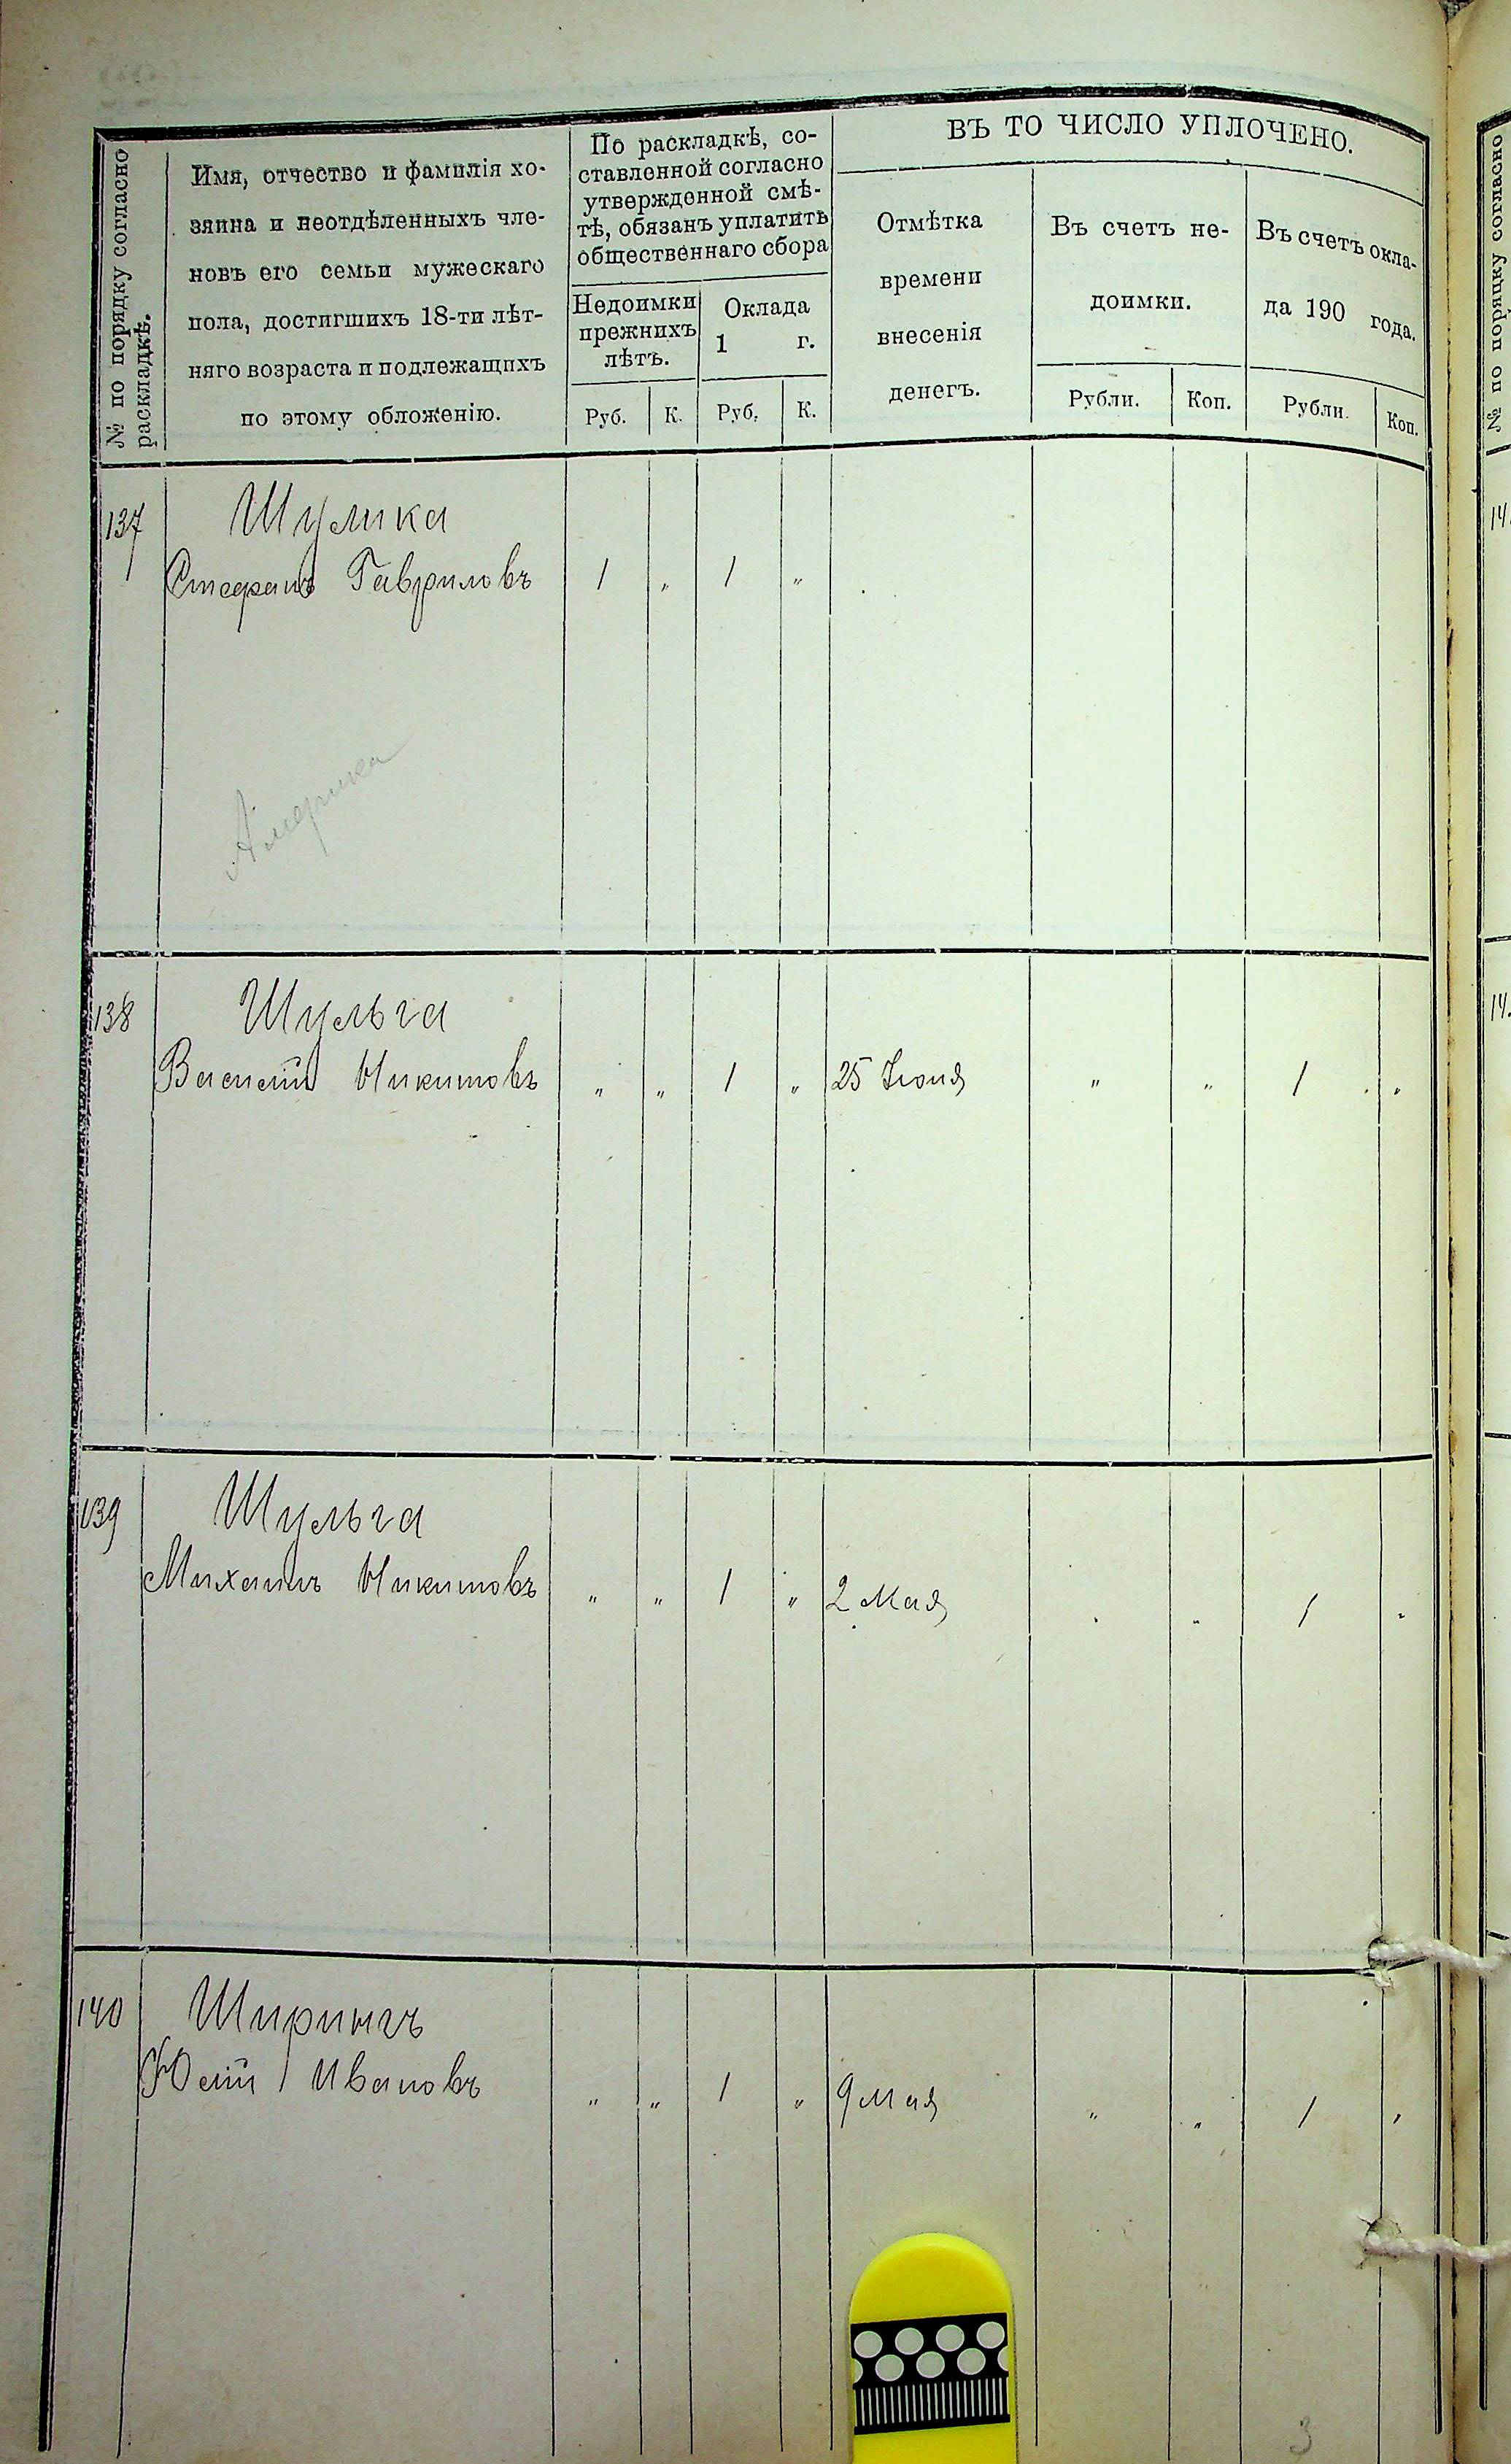 № по порядку согласно раскладкѣ.
Имя, отчество и фамилія хо-
зяина и неотдѣленныхъ чле-
новъ его семьи мужескаго
пола, достигшихъ 18-ти лѣт-
няго возраста и подлежащихъ
по этому обложенію.
По раскладкѣ, со-
ставленной согласно
утвержденной смѣ-
тѣ, обязанъ уплатить
общественнаго сбора
Недоимки
прежнихъ
лѣтъ.
Оклада
1 г.
Руб. К. Руб. К.
ВЪ ТО ЧИСЛО УПЛОЧЕНО.
Отмѣтка
времени
внесенія
денегъ.
Въ счетъ не-
доимки.
Въ счетъ окла-
да 190 года.
Рубли. Коп. Рубли. Коп.
137 Шулика
Стефанъ Гавриловъ 1 „ 1 „
Америка
138 Шульга
Василій Никитовъ „ „ 1 „ 25 Іюня „ „ 1 „
139 Шульга
Михаилъ Никитовъ „ „ 1 „ 2 Мая „ „ 1 „
140 Ширингъ
Юлій Ивановъ „ „ 1 „ 9 Мая „ „ 1 „
3
№ по порядку согласно
14
14